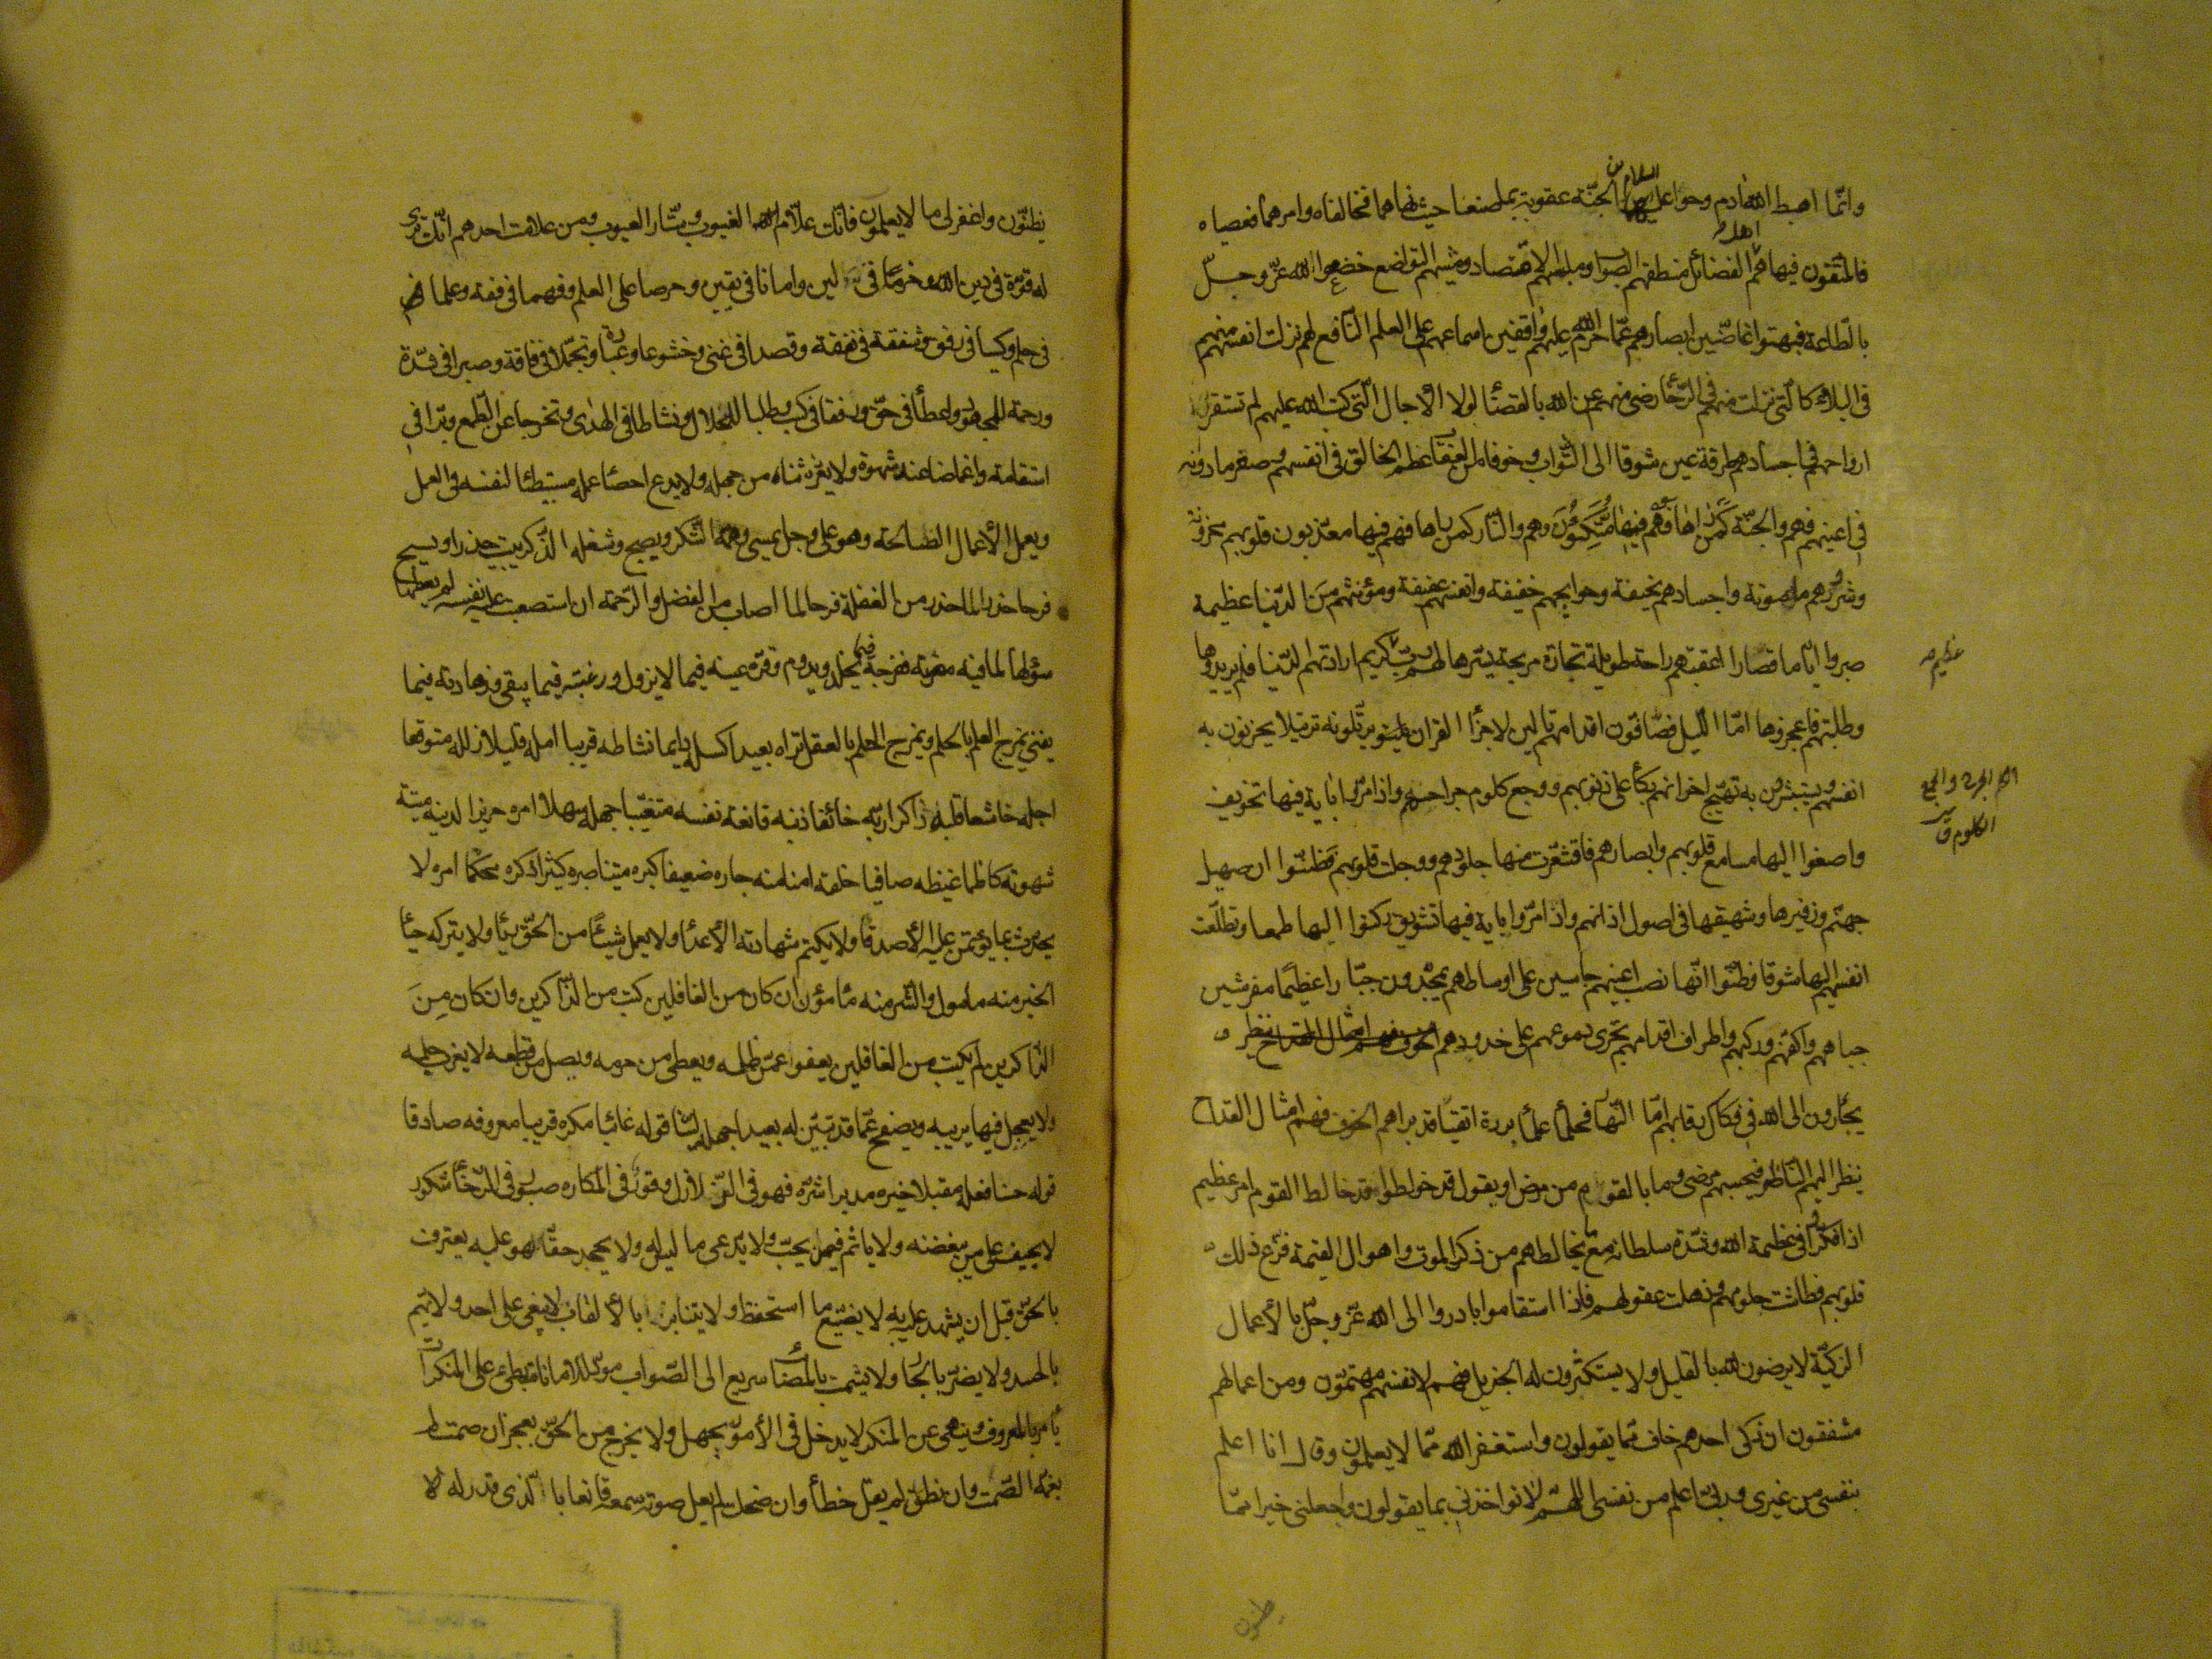 وانّما اهبط الله ادم وحوا عليهما السلام من الجنّة عقوبة بما صنعا حيث نهاهما فخالفاه وامرهما فعصياه
فالمتّقون فيها هم اهل الفضائل منطقهم الصّواب وملبسهم الاقتصاد ومشيهم التواضع خضعوا لله عزّ وجلّ
بالطّاعة فبهتوا غاضّين ابصارهم عمّا حرّم الله عليهم واقفين اسماعهم على العلم النّافع لهم نزلت انفسهم منهم
فى البلاء كالّتى نزلت منهم فى الرّخاء رضى منهم عن الله بالقضاء لولا الاجال الّتى كتب الله عليهم لم تستقر
ارواحهم فى اجسادهم طرفة عين شوقا الى الثّواب وخوفا من العقاب عظم الخالق فى انفسهم وصغر ما دونه
فى اعينهم فهم والجنّة كمن راها فهم فيها متّكئون وهم والنّار كمن راها فهم فيها معذّبون قلوبهم محزونة
وشرورهم مامونة واجسادهم نحيفة وحوايجهم خفيفة وانفسهم عفيفة ومؤنتهم من الدّنيا عظيمة
صبروا ايّاما قصارا اعقبتهم راحة طويلة تجارة مربحة يسّرها لهم ربّ كريم ارادتهم الدّنيا فلم يريدوها
عظيم
وطلبتهم فاعجزوها امّا اللّيل فصّافّون اقدامهم تالين لاجزاء القران يرتّلونه ترتيلا يحزنون به
انفسهم ويستبشرون به تهيج احزانهم بكاء على ذنوبهم ووجع كلوم جراحهم واذا مرّوا باية فيها تخويف
واصغوا اليها مسامع قلوبهم وابصارهم فاقشعرّت منها جلودهم ووجلت قلوبهم فظنّوا ان صهيل
جهنّم وزفيرها وشهيقها فى اصول اذانهم واذا مرّوا باية فيها تشويق ركنوا اليها طمعا وتطلّعت
انفسهم اليها شوقا وظنّوا انّها نصب اعينهم جاسين على اوساطهم يمجّدون جبّارا عظيما مفترشين
جباههم واكفّهم وركبهم واطراف اقدامهم تجرى دموعهم على خدودهم
يجأرون الى الله فى فكاك رقابهم امّا النّهار فحلماء علماء بررة اتقياء قد براهم الخوف فهم امثال القداح
ينظر اليهم النّاظر فيحسبهم مرضى وما بالقوم من مرض او يقول قد خولطوا فقد خالط القوم امر عظيم
اذا فكّروا فى عظمة الله وشدّة سلطانه مع ما يخالطهم من ذكر الموت واهوال القيمة فزع ذلك
قلوبهم فطاشت حلومهم وذهلت عقولهم فاذا استقاموا بادروا الى الله عزّ وجلّ بالأعمال
الزكيّة لا يرضون لله بالقليل ولا يستكثرون له الجزيل فهم لانفسهم متّهمون ومن اعمالهم
مشفقون ان زكى احدهم خاف ممّا يقولون واستغفر الله ممّا لا يعلمون وقال انا اعلم
بنفسى من غيرى وربّى اعلم من نفسى اللهم لا تواخذنى بما يقولون واجعلنى خيرا ممّا
يظنون
يظنّون واغفر لى ما لا يعلمون فانّك علّام الغيوب وستّار العيوب ومن علامت احدهم انّك ترى
له قوّة فى دين الله وحزما فى لين وامانا فى يقين وحرصا على العلم وفهما فى فقه وعلما
فى حلم وكيسا فى رفق وشفقة فى نفقة وقصدا فى غنى وخشوعا فى عبادة وتجمّلا فى فاقة وصبرا فى شدّة
ورحمة للمجهود واعطأ فى حقّ ورفقا فى كسب وطلبا للحلال ونشاطا فى الهدى وتحرجا عن الطّمع وبرّا فى
استقامة واغماضا عند شهوة ولا يغرّه ثناء من جهله ولا يدع احصاء عمله مستبطئا لنفسه فى العمل
ويعمل الأعمال الصّالحة وهو على وجل يمسى وهمّه الشّكر ويصبح وشغله الذّكر يبيت حذرا ويصبح
فرحا حذرا لما حذر من الغفلة فرحا لما اصاب من الفضل والرّحمة ان استصعبت عليه نفسه لم يعطها
سؤلها لما فيه مضرّته ففرحه فيما يخلد ويدوم وقرّة عينه فيما لا يزول ورغبته فيما يبقى وزهادته فيما
يفنى يمزج العلم بالحلم ويمزج الحلم بالعقل تراه بعيدا كسله دايما نشاطه قريبا امله قليلا زلله متوقعا
اجله خاشعا قلبه ذاكرا ربّه خائفا ذنبه قانعة نفسه متغيّبا جهله سهلا امره حريزا لدينه ميتة
شهوته كاظما غيظه صافيا خلقه امنا منه جاره ضعيفا كبره متينا صبره كثيرا ذكره محكما امره لا
يحدث بما يؤتمن عليه الأصدقا ولا يكتم شهادته الأعدا ولا يعمل شيئا من الحقّ ريئا ولا يتركه حيأ
الخير منه مامول والشّر منه مأمون ان كان من الغافلين كتب من الذّاكرين وان كان من
الذّاكرين لم يكتب من الغافلين يعفو عمّن ظلمه ويعطى من حرمه ويصل من قطعه لا يعزب حلمه
ولا يعجل فيما يريبه ويصفح عمّا قد تبيّن له بعيدا جهله ليّنا قوله غائبا مكره قريبا معروفه صادقا
قوله حسنا فعله مقبلا خيره مدبرا شرّه فهو فى الزّلازل وقور وفى المكاره صبور وفى الرّخاء شكور
لا يحيف على من يبغضه ولا ياثم فيمن يحبّ ولا يدّعى ما ليس له ولا يجحد حقّا هو عليه يعترف
بالحقّ قبل ان يشهد عليه به لا يضيّع ما استحفظ ولا يتنابز بالألقاب لا يبغى على احد ولا يهم
بالحسد ولا يضرّ بالجار ولا يشمت بالمصاب سريع الى الصّواب مودّ للامانات بطىء على المنكرات
يأمر بالمعروف وينهى عن المنكر لا يدخل فى الأمور بجهل ولا يخرج من الحقّ بعجز ان صمت لم
يغمّه الصّمت وان نطق لم يقل خطأ وان ضحك لم يعل صوته سمعه قانعا بالّذى قدر له لا